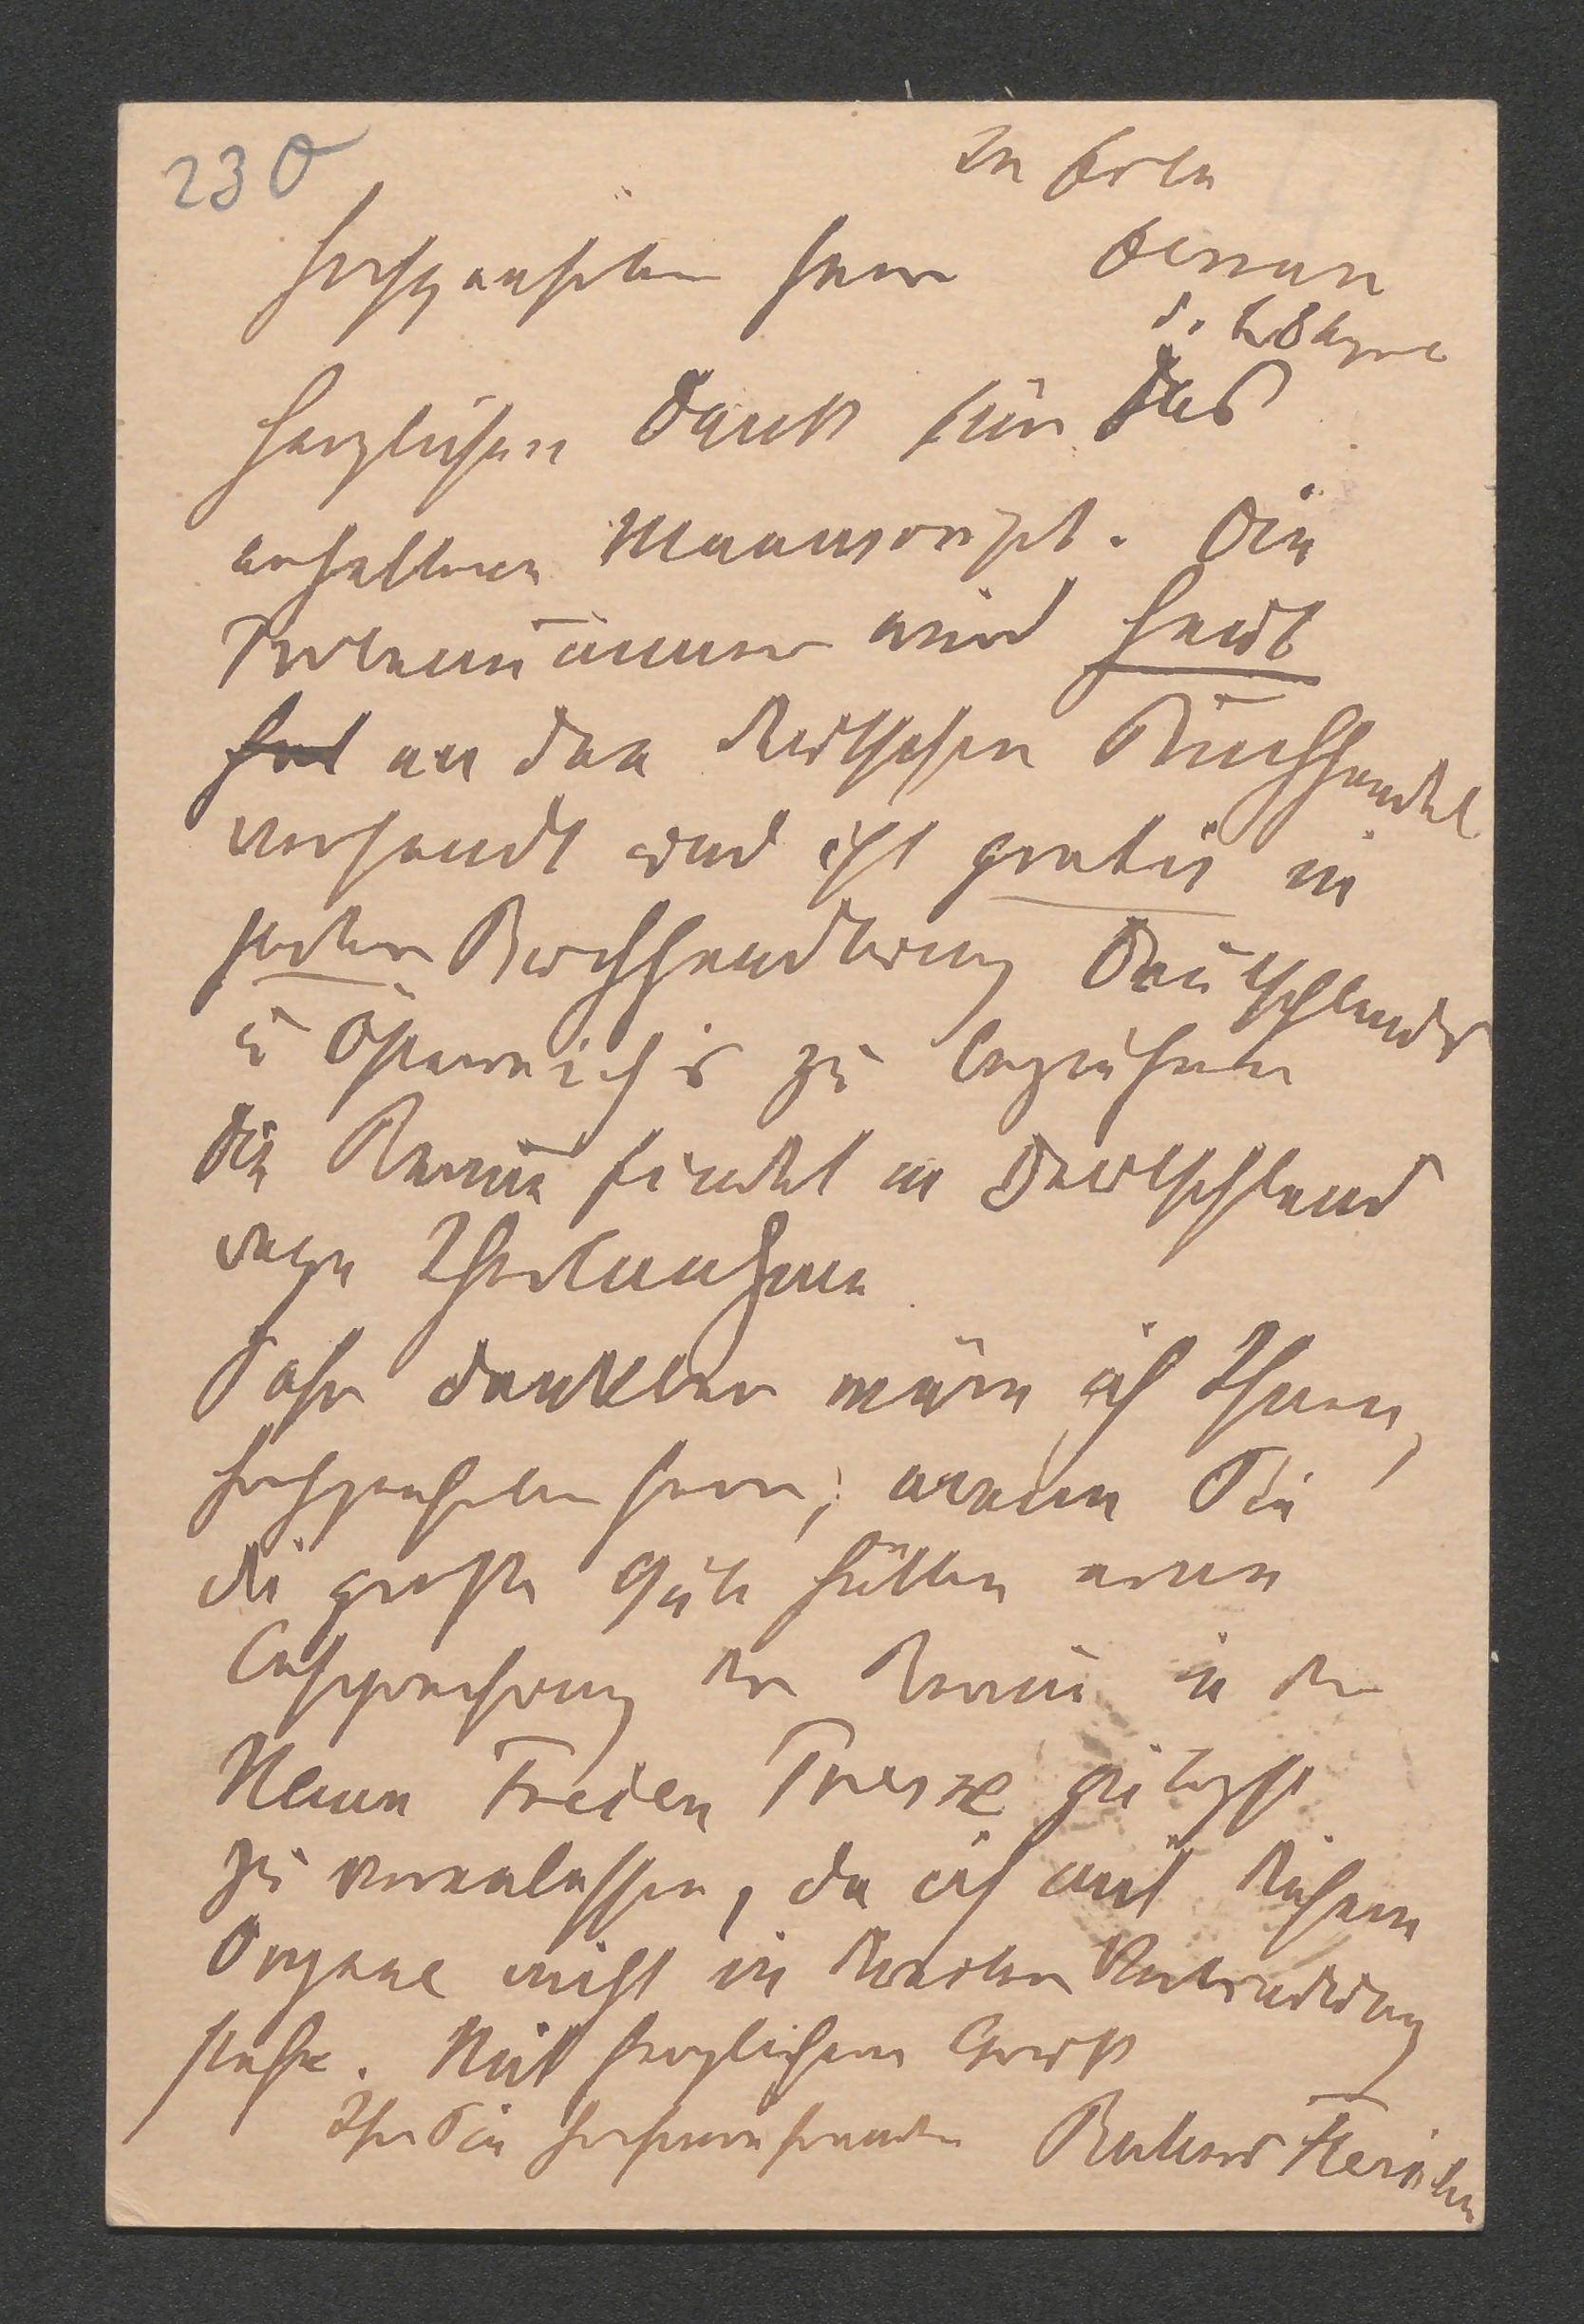 230
In Eile
Hochgeehrter Herr
d. 28
Herzlichen Dank für das
erhaltene Manuscript. Die
Probenummer wird heut
an den deutschen Buchhandel
versandt und ist gratis in
jeder Buchhandlung Deutschlands
u Östereichs zu beziehen
Die Revue findet in Deutschland
rege Theilnahme
Sehr dankbar wäre ich Ihnen,
hochgeehrter Herr, wenn Sie
die große Güte hätten eine
Besprechung der Revue in der
Neuen Freien Presse gütigst
zu veranlassen, da ich mit diesem
Organe nicht in directer Verbindung
stehe. Mit herzlichem Gruß
Ihr Sie hochverehrender Richard Fleischer